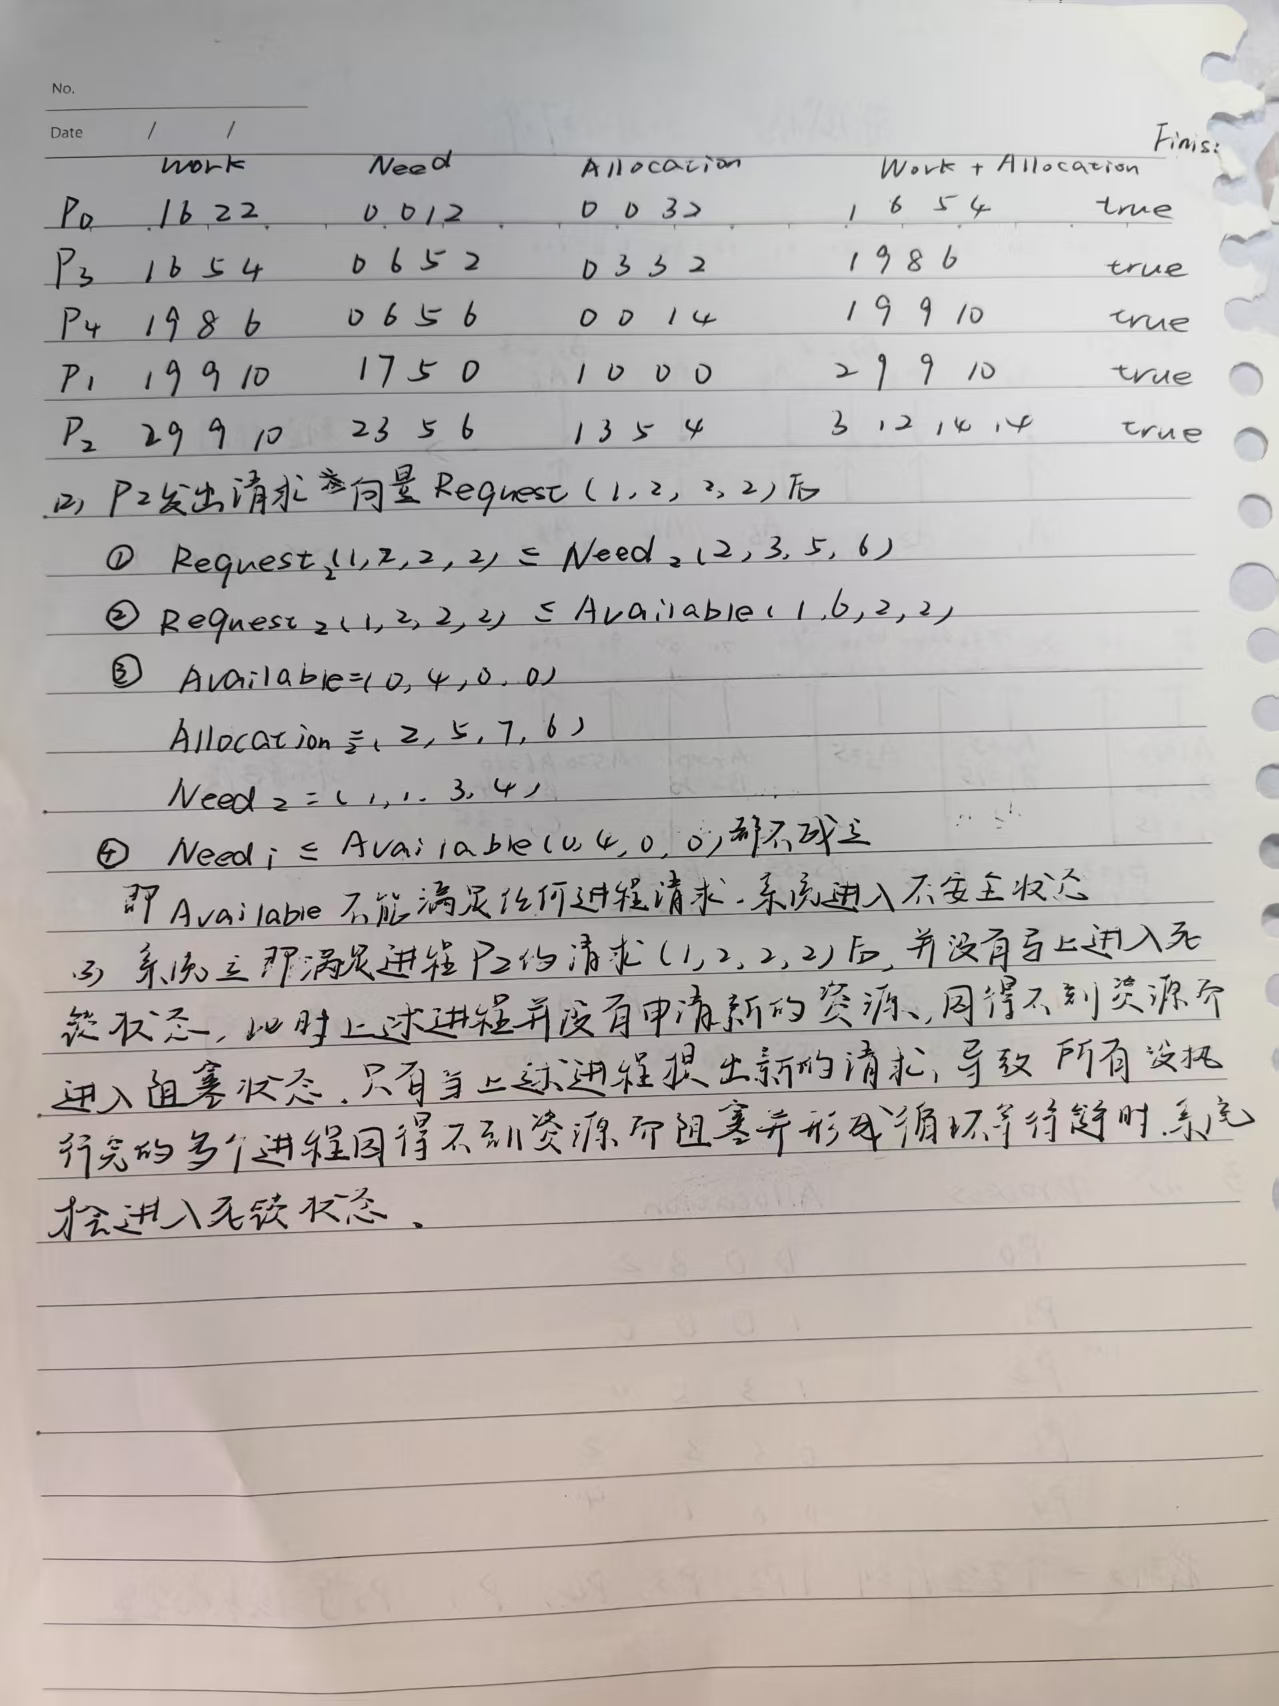 No.
Date / /
Work Need Allocation Work + Allocation Finis:
P0 1622 0012 0032 1 6 5 4 true
P3 1654 0652 0332 1986 true
P4 1986 0656 0014 19 9 10 true
P1 19 9 10 1750 1000 29 9 10 true
P2 29 9 10 2356 1354 3 12 14 14 true
(2) P2发出请求向量Request(1,2,2,2)后
① Request2(1,2,2,2) ≤ Need2(2,3,5,6)
② Request2(1,2,2,2) ≤ Available(1,6,2,2)
③ Available=(0,4,0,0)
Allocation2=(2,5,7,6)
Need2=(1,1,3,4)
④ Needi ≤ Available(0,4,0,0)都不成立
即Available不能满足任何进程请求.系统进入不安全状态
(3) 系统立即满足进程P2的请求(1,2,2,2)后,并没有马上进入死
锁状态,此时上述进程并没有申请新的资源,因得不到资源而
进入阻塞状态.只有当上述进程提出新的请求,导致所有没执
行完的多个进程因得不到资源而阻塞并形成循环等待链时.系统
才会进入死锁状态.